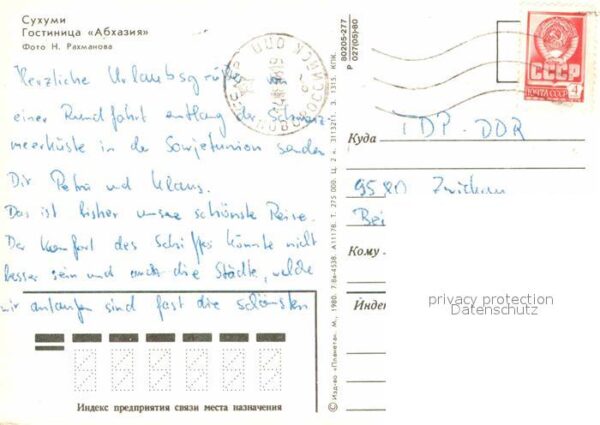 Сухуми
Гостиница «Абхазия»
Фото Н. Рахманова
Herzliche Urlaubsgrüße von
einer Rundfahrt entlang der Schwarz-
meerküste in der Sowjetunion senden
Dir Petra und Klaus.
Das ist bisher unsere schönste Reise.
Der Komfort des Schiffes könnte nicht
besser sein und auch die Städte, welche
wir anlaufen sind fast die schönsten
Индекс предприятия связи места назначения
© Изд-во «Планета». М., 1980. 7-8а-4538. А11178. Т. 275 000. Ц. 2 к. 3113211. З. 1315. КПК.
Р 80205-277
027(05)-80
СССР
ПОЧТА СССР 4
Куда ГДР-DDR
95 80 Zwickau
Bei
Кому
Индекс
privacy protection
Datenschutz